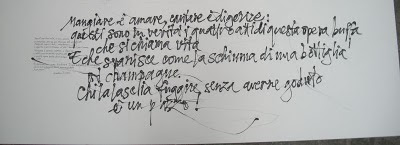 Mangiare è amare, cantare è digerire:
questi sono in verità i quattro atti di questa opera buffa
che si chiama vita
E che svanisce come la schiuma di una bottiglia
di champagne.
Chi la lascia fuggire senza averne goduto
è un pazzo!